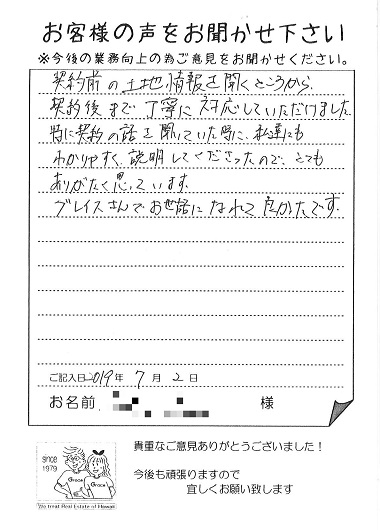 お客様の声をお聞かせ下さい
※今後の業務向上の為ご意見をお聞かせください。
契約前の土地情報を聞くところから、
契約後まで丁寧に対応していただけました。
特に契約の話を聞いていた際に、私達にも
わかりやすく説明してくださったので、とても
ありがたく思っています。
プレイスさんでお世話になれて良かったです。
ご記入日2019年 7月 2日
お名前 様
since
1979
Grace
Grace
We treat Real Estate of Hawaii
貴重なご意見ありがとうございました！
今後も頑張りますので
宜しくお願い致します